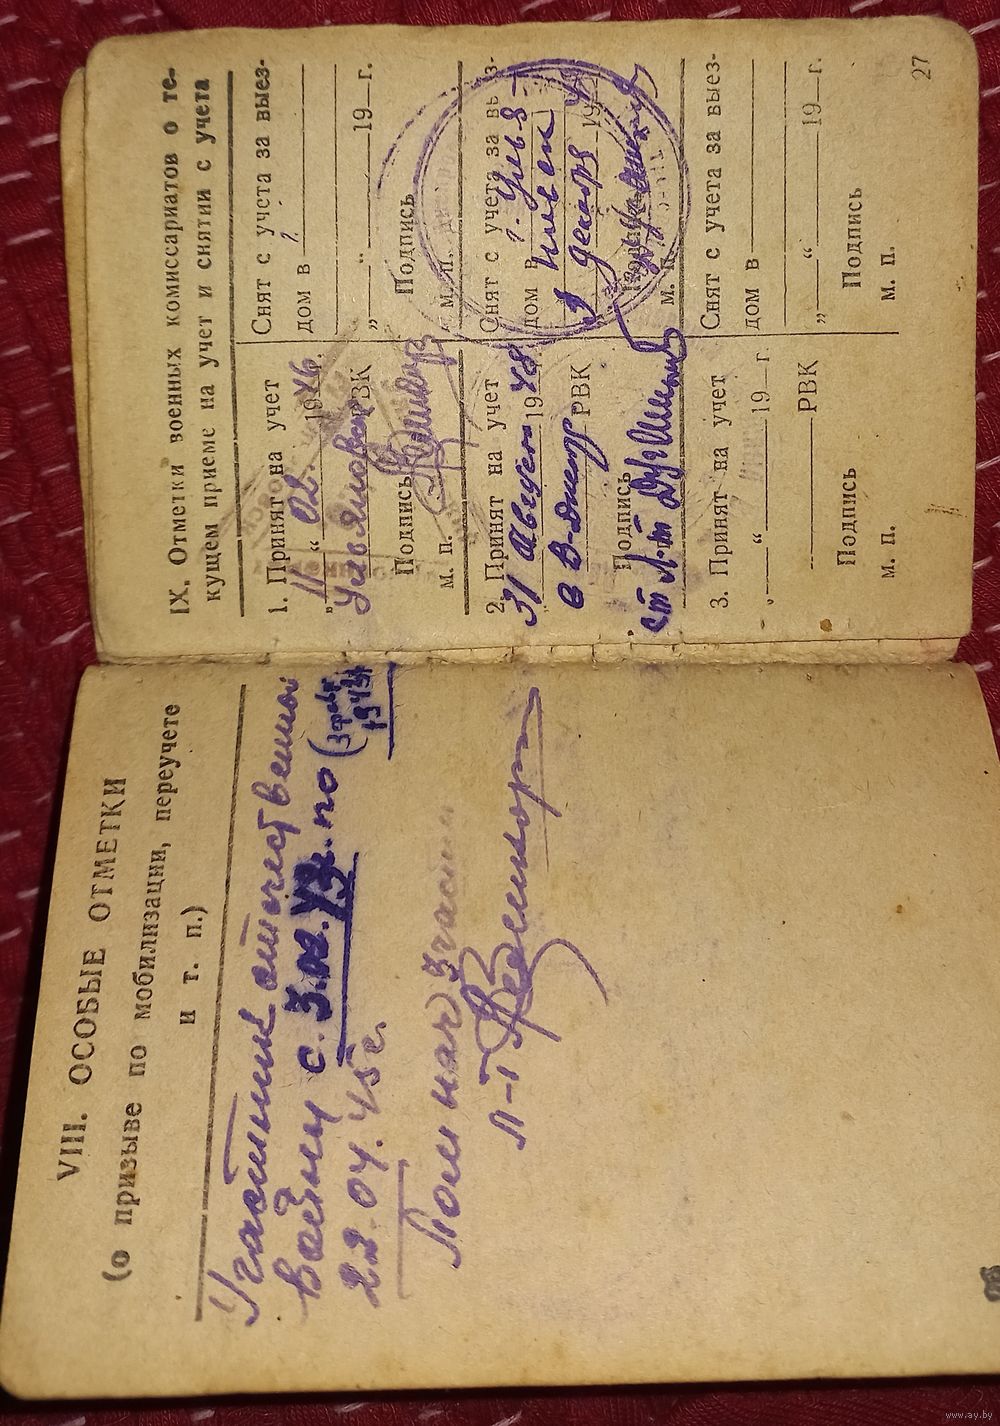 VIII. ОСОБЫЕ ОТМЕТКИ
(о призыве по мобилизации, переучете
и т. п.)
Участник отечественной
войны с 3.02.43г. по (3 февр
1943г
22.04.45г.
Пом нач 3 части
л-т
IX. Отметки военных комиссариатов о те-
кущем приеме на учет и снятии с учета
1. Принят на учет
„11“ 02. 1946г.
Ульяновск РВК
Подпись
м. п.
Снят с учета за выез-
дом в
„ “ 19 г.
Подпись
м. п.
2. Принят на учет
31 августа 1948
РВК
Подпись
ст л-т
Снят с учета за выез-
дом в г. Улья-
новск
9 декабря 19
Подпись
м. п.
3. Принят на учет
„ “ 19 г
РВК
Подпись
м. п.
Снят с учета за выез-
дом в
„ “ 19 г.
Подпись
м. п.
27
www.ay.by